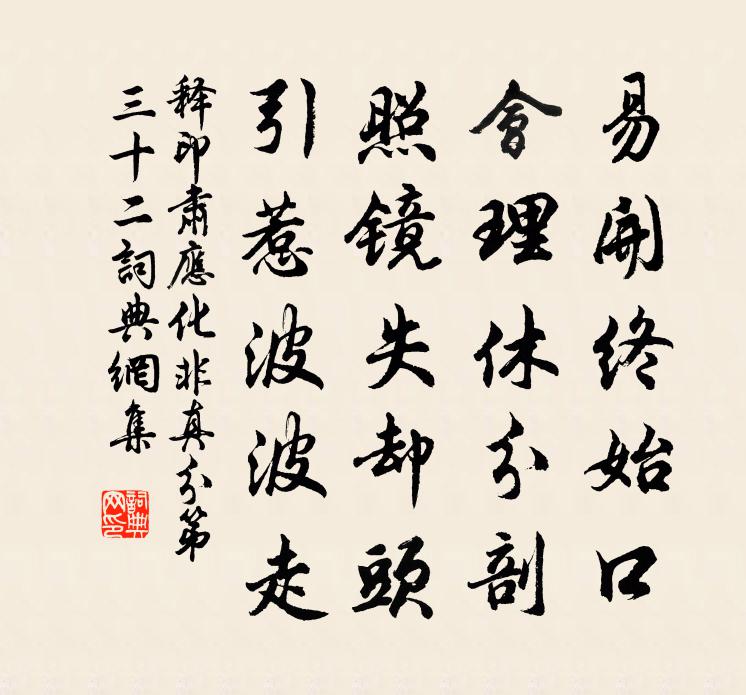 易開終始口
會理休分剖
照鏡失却頭
引惹波波走
释印肅應化非真分第
三十二詞典網集
詞典
网印